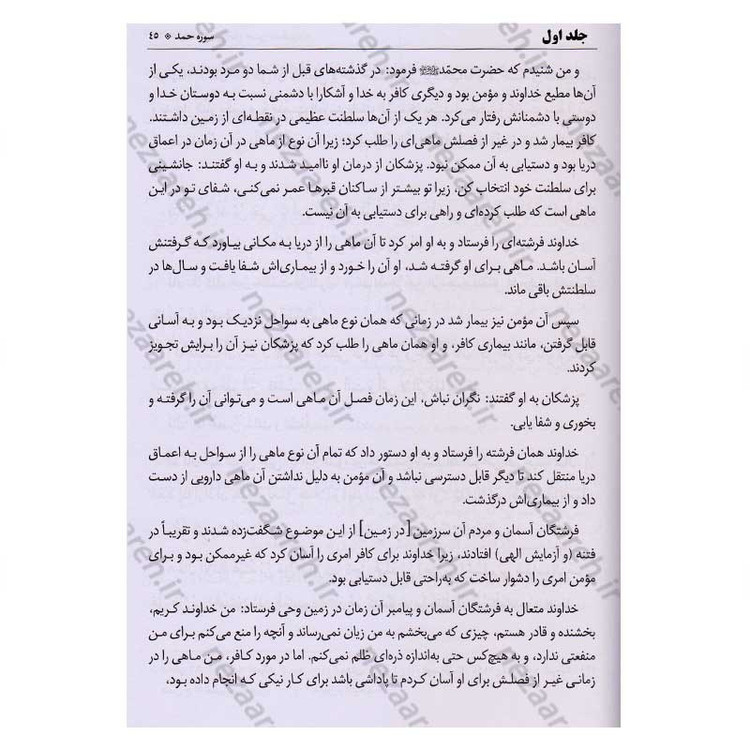 جلد اول
سوره حمد * ٤٥
و من شنیدم که حضرت محمّدﷺ فرمود: در گذشته‌های قبل از شما دو مرد بودند، یکی از
آن‌ها مطیع خداوند و مؤمن بود و دیگری کافر به خدا و آشکارا با دشمنی نسبت به دوستان خدا و
دوستی با دشمنانش رفتار می‌کرد. هر یک از آن‌ها سلطنت عظیمی در نقطه‌ای از زمین داشتند.
کافر بیمار شد و در غیر از فصلش ماهی‌ای را طلب کرد؛ زیرا آن نوع از ماهی در آن زمان در اعماق
دریا بود و دستیابی به آن ممکن نبود. پزشکان از درمان او ناامید شدند و به او گفتند: جانشینی
برای سلطنت خود انتخاب کن، زیرا تو بیشتر از ساکنان قبرها عمر نمی‌کنی، شفای تو در این
ماهی است که طلب کرده‌ای و راهی برای دستیابی به آن نیست.
خداوند فرشته‌ای را فرستاد و به او امر کرد تا آن ماهی را از دریا به مکانی بیاورد که گرفتنش
آسان باشد. ماهی برای او گرفته شد، او آن را خورد و از بیماری‌اش شفا یافت و سال‌ها در
سلطنتش باقی ماند.
سپس آن مؤمن نیز بیمار شد در زمانی که همان نوع ماهی به سواحل نزدیک بود و به آسانی
قابل گرفتن، مانند بیماری کافر، و او همان ماهی را طلب کرد که پزشکان نیز آن را برایش تجویز
کردند.
پزشکان به او گفتند: نگران نباش، این زمان فصل آن ماهی است و می‌توانی آن را گرفته و
بخوری و شفا یابی.
خداوند همان فرشته را فرستاد و به او دستور داد که تمام آن نوع ماهی را از سواحل به اعماق
دریا منتقل کند تا دیگر قابل دسترسی نباشد و آن مؤمن به دلیل نداشتن آن ماهی دارویی از دست
داد و از بیماری‌اش درگذشت.
فرشتگان آسمان و مردم آن سرزمین [در زمین] از این موضوع شگفت‌زده شدند و تقریباً در
فتنه (و آزمایش الهی) افتادند، زیرا خداوند برای کافر امری را آسان کرد که غیرممکن بود و برای
مؤمن امری را دشوار ساخت که به‌راحتی قابل دستیابی بود.
خداوند متعال به فرشتگان آسمان و پیامبر آن زمان در زمین وحی فرستاد: من خداوند کریم،
بخشنده و قادر هستم، چیزی که می‌بخشم به من زیان نمی‌رساند و آنچه را منع می‌کنم برای من
منفعتی ندارد، و به هیچ‌کس حتی به‌اندازه ذره‌ای ظلم نمی‌کنم. اما در مورد کافر، من ماهی را در
زمانی غیر از فصلش برای او آسان کردم تا پاداشی باشد برای کار نیکی که انجام داده بود،
nezaareh.ir